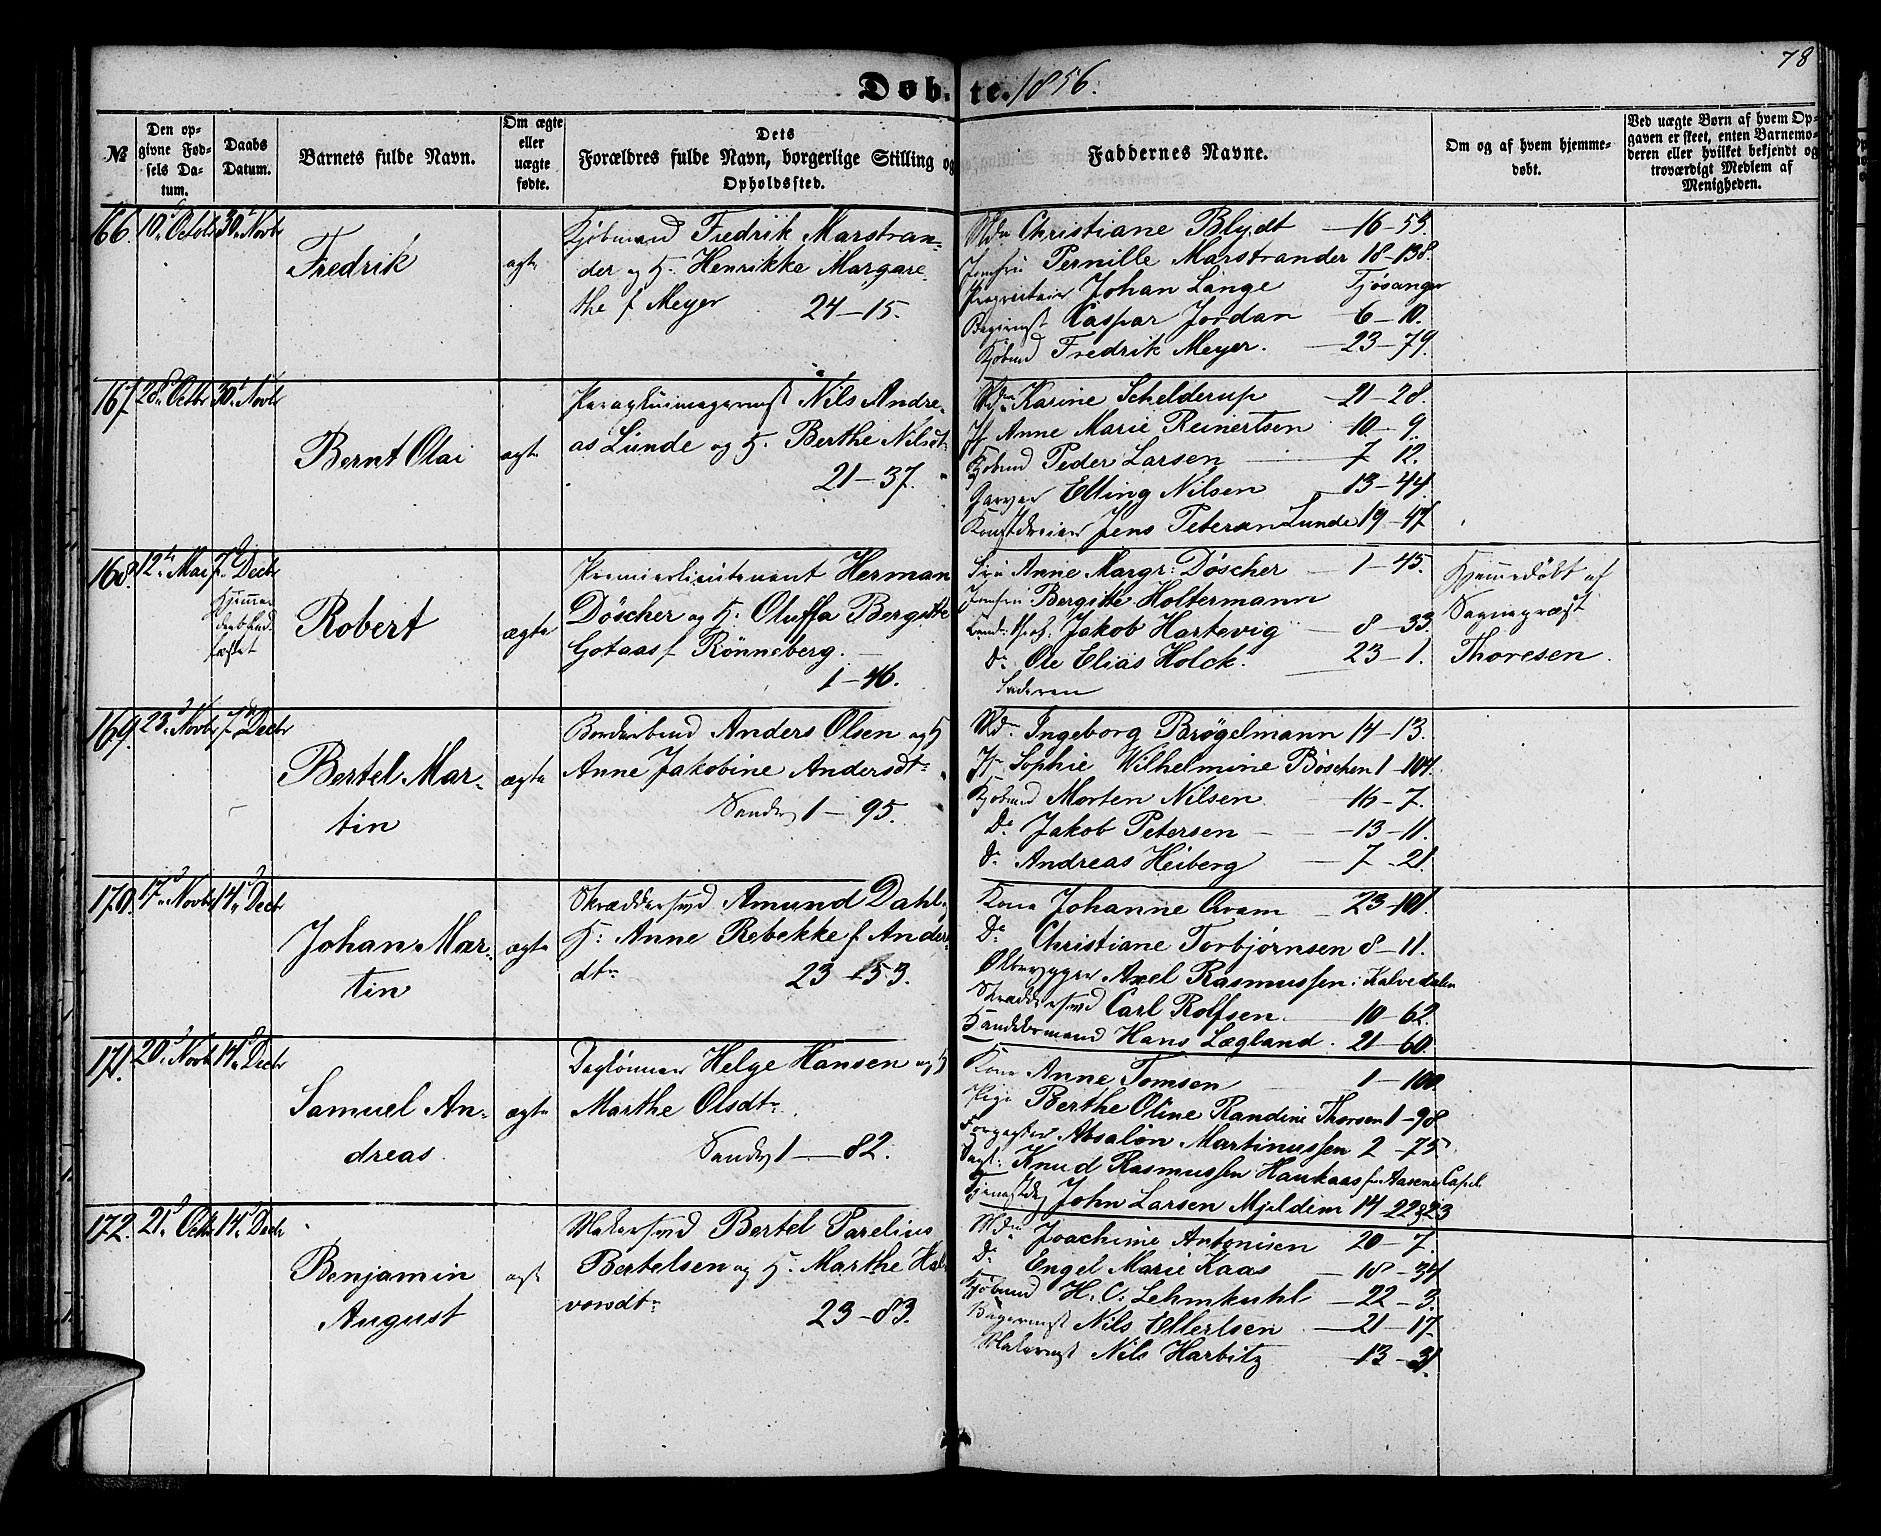 78
Døb-te. 1856.
№
Den opgivne Fødsels Datum.
Daabs Datum.
Barnets fulde Navn.
Om ægte eller uægte fødte.
Dets Forældres fulde Navn, borgerlige Stilling og Opholdssted.
Faddernes Navne.
Om og af hvem hjemmedøbt.
Ved uægte Børn af hvem Opgaven er skeet, enten Barnemoderen eller hvilket bekjendt og troværdigt Medlem af Menigheden.
166. 10de Octobr 30te Novbr
Fredrik
ægte
Kjøbmand Fredrik Marstran-
der og H. Henrikke Margare-
the f Meyer 24-15.
Mdm Christiane Blydt 16-55.
Jomfru Pernille Marstrander 18-138.
Proprietair Johan Lange Fjøsanger
Bagermst Caspar Jordan 6-10.
Kjøbmd Fredrik Meyer. 23-79.
167. 28de Octbr 30te Novbr
Bernt Olai
ægte
Paraplüimagermst Nils Andre-
as Lunde og H. Berthe Nilsdt
21-37.
Mdm Karine Schelderup 21-28.
Jf Anne Marie Reinertsen 10-9.
Kjøbmd Peder Larsen 7 12.
Garver Elling Nilsen 13-44.
Kunstdreier Jens Peteran Lunde 19-47.
168. 12te Mai 7de Decbr
Hjemme
daab stad-
fæstet
Robert
ægte
Premierlieutenant Herman
Döscher og H. Oluffa Bergitte
Gotaas f Rönneberg.
1-46.
Fru Anne Margr: Döscher 1-45.
Jomfru Bergitte Holtermann
Jakob Hartevig 8-33.
Do Ole Elias Holck. 23-1.
Faderen
Hjemmedøbt af
Sognepræst
Thoresen.
169. 23de Novbr 7de Decbr
Bertel Mar-
tin
ægte
Anders Olsen og H
Anne Jakobine Andersdtr
Sandv. 1-95.
Md. Ingeborg Brøgelmann 14-13.
Jf Sophie Wilhelmine Böschen 1-104.
Kjøbmd Morten Nilsen 16-7.
Do Jakob Petersen 13-11.
Do Andreas Heiberg 7-21.
170. 17de Novbr 14de Decbr
Johan Mar-
tin
ægte
Skræddersvd Amund Dahl
H: Anne Rebekke f. Ander
dtr 23-153.
Kone Johanne Qvam 23-101.
Do Christiane Torbjørnsen 8-11.
Ølbrygger Axel Rasmussen i Kalvedalen
Skræddersvd Carl Rolfsen 10-62.
Handelsmand Hans Lægland. 21-60.
171. 20de Novbr 14de Decbr
Samuel An-
dreas.
ægte
Daglönner Helge Hansen og H
Marthe Olsdtr.
Sandv. 1-82.
Kone Anne Tomsen 1-100
Pige Berthe Oline Randine Thorsen 1-98
Absalon Martinussen 2-75
Knud Rasmussen Haukaas fra Aasene Capel.
Tjenestdr John Larsen Mjeldem 14-22 & 23
172. 21de Octbr 14de Decbr
Benjamin
August
ægte
Malersvd Bertel Parelius
Bertelsen og H. Marthe Hal-
vorsdtr 23-83.
Mdm Joachime Antonisen 20-7.
Do Engel Marie Kaas 18-34
Kjøbmd H. C: Lehmkuhl 22-3.
Bagermst Nils Ellertsen 21-17
Malermst Nils Harbitz 13-31.